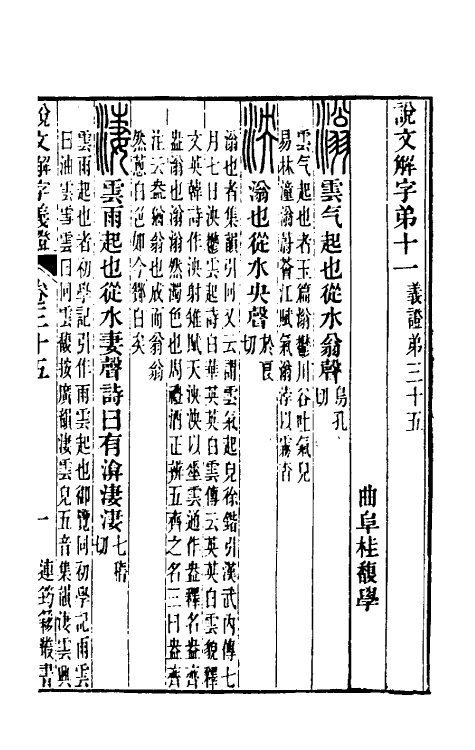 說文解字弟十一 義證弟三十五
曲阜桂馥學
滃 雲气起也從水翁聲 烏孔切
雲气起也者玉篇滃鬱川谷吐氣皃
易林潼滃蔚薈江賦氣滃浡以霧杳
泱 滃也從水央聲 於良切
滃也者集韻引同又云謂雲氣起皃徐鍇引漢武內傳七
月七日泱鬱雲起詩白華英英白雲傳云英英白雲貌釋
文英韓詩作泱射雉賦天泱泱以垂雲通作盎釋名盎齊
盎滃也滃滃然濁色也周禮酒正辨五齊之名三曰盎齊
注云盎猶翁也成而翁翁
然蔥白色如今酇白矣
淒 雲雨起也從水妻聲詩曰有渰淒淒 七稽切
雲雨起也者初學記引作雨雲起也御覽同初學記雨雲
曰油雲雪雲曰同雲馥按廣韻淒雲皃五音集韻淒雲興
說文解字義證 卷三十五 一 連筠簃叢書